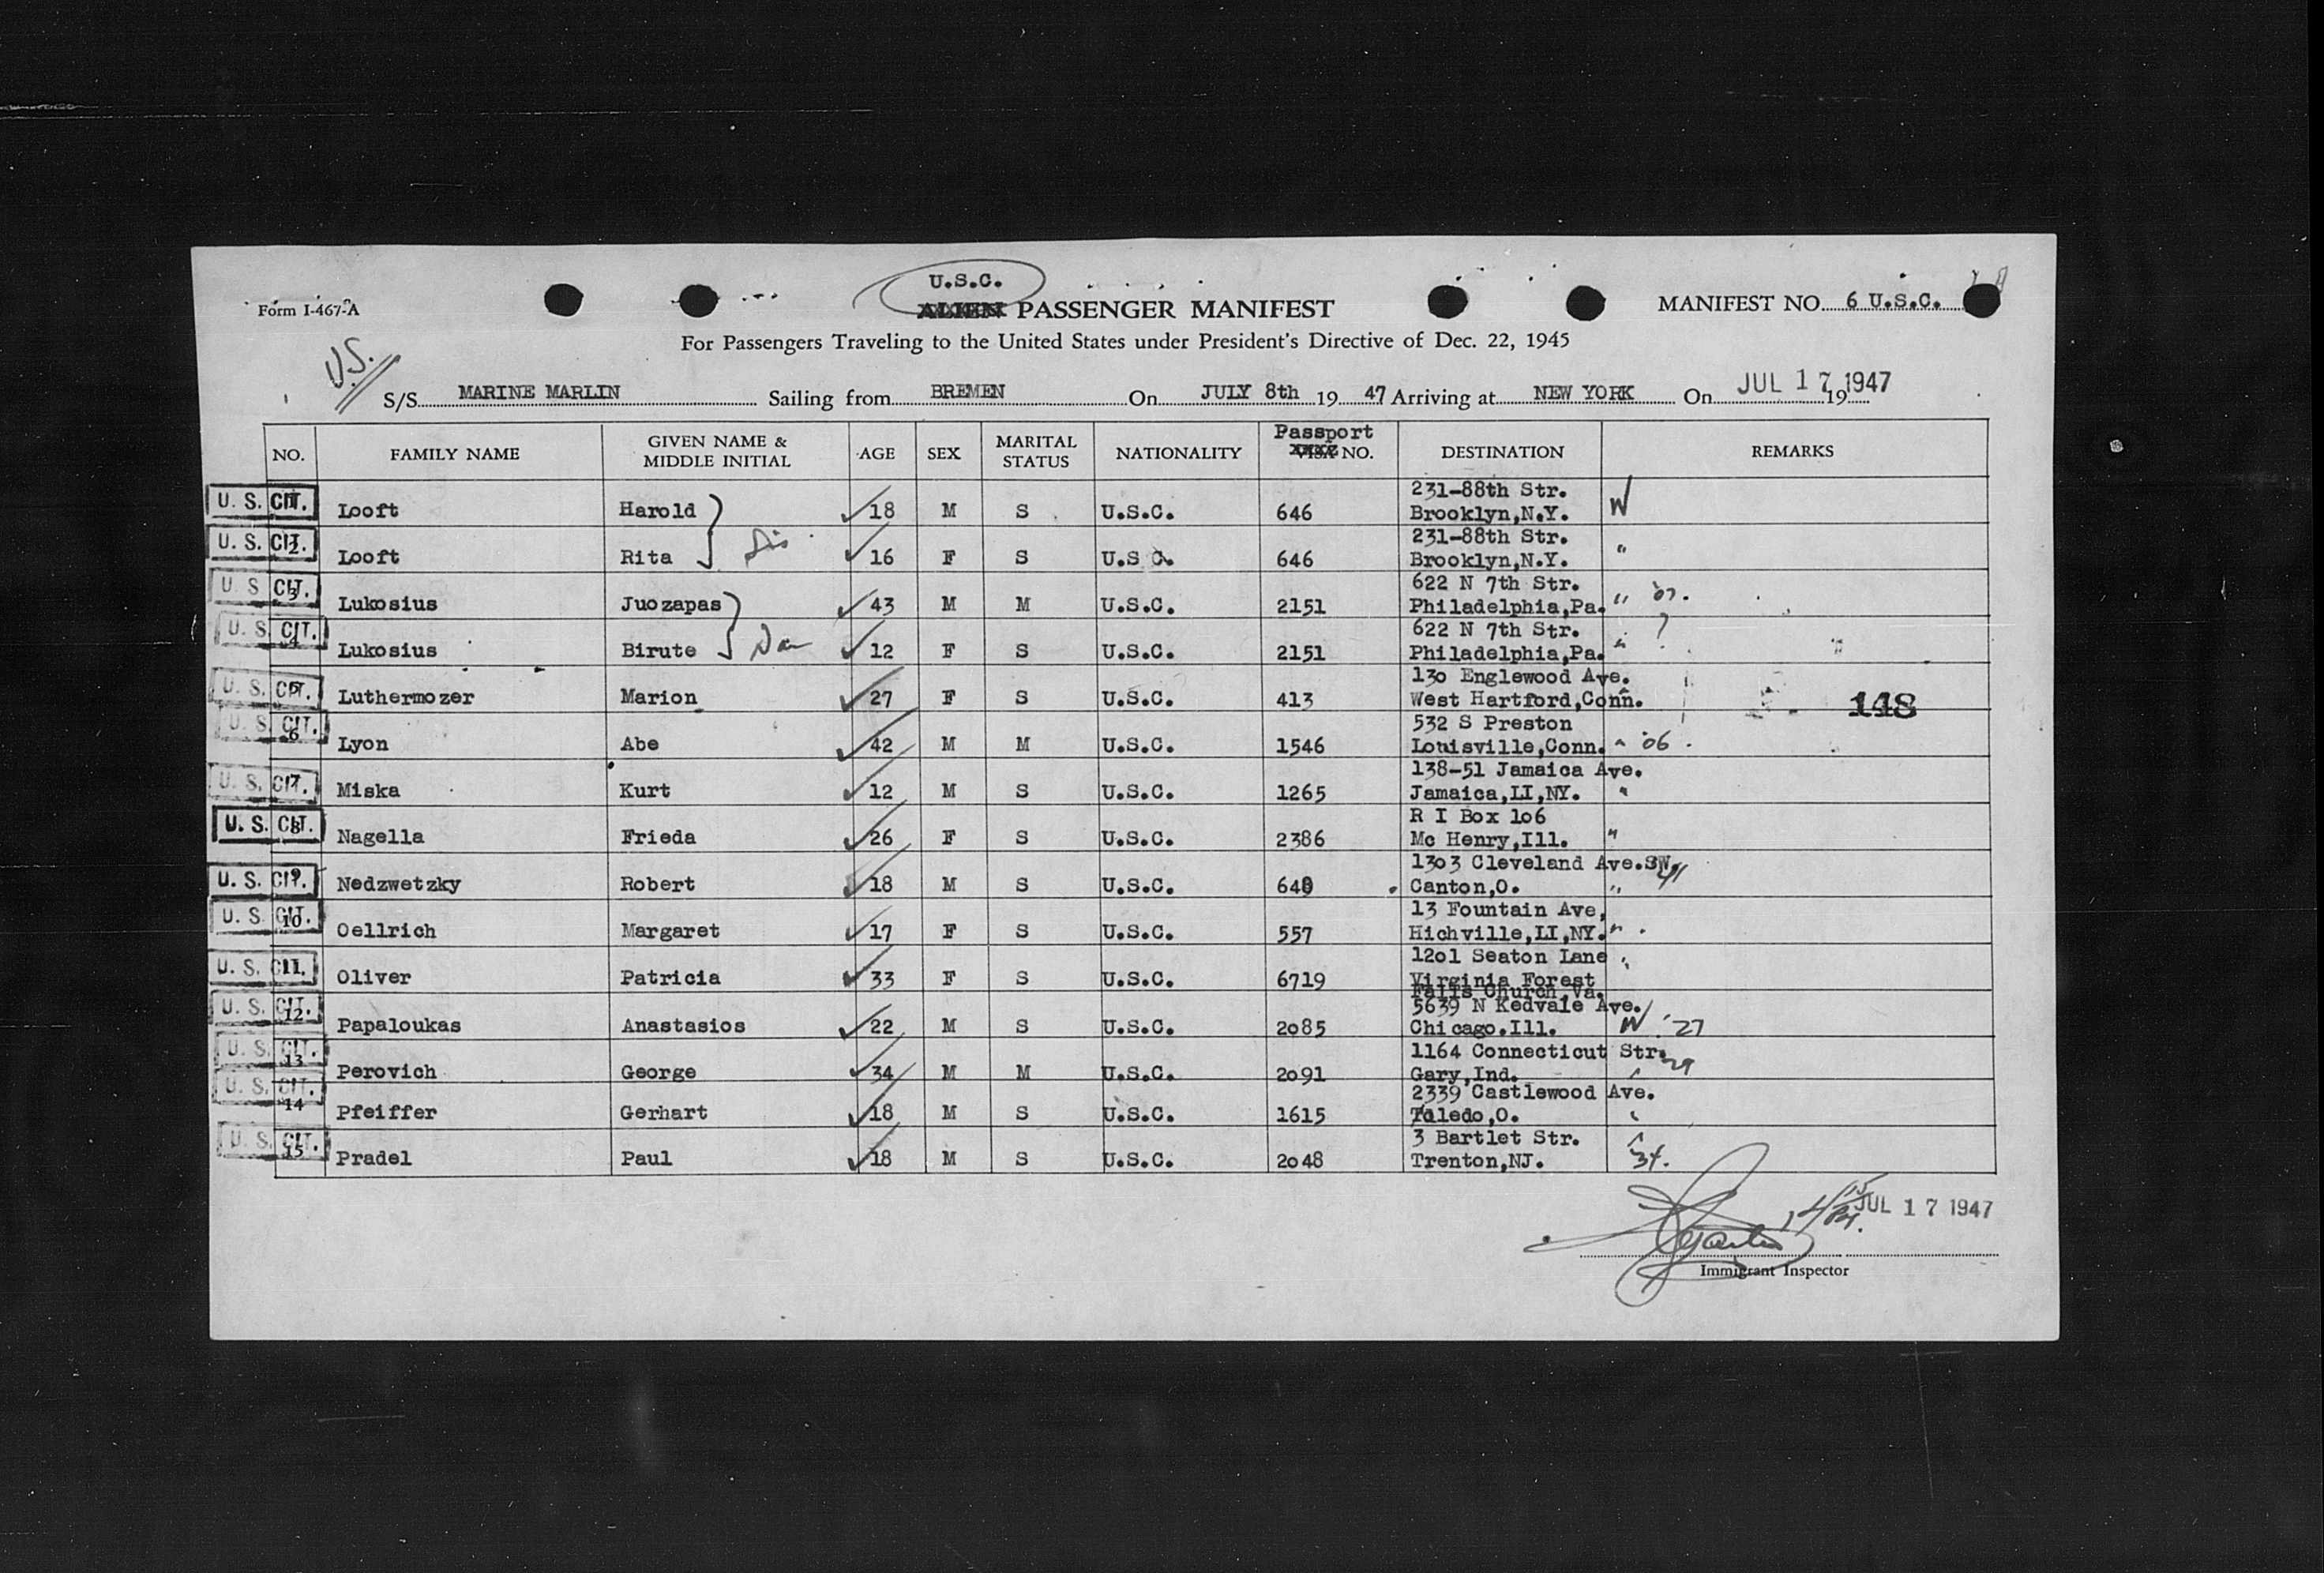 U.S.C.
Form I-467-A
ALIEN PASSENGER MANIFEST
MANIFEST NO. 6 U.S.C.
For Passengers Traveling to the United States under President's Directive of Dec. 22, 1945
U.S.
S/S MARINE MARLIN Sailing from BREMEN On JULY 8th 19 47 Arriving at NEW YORK On JUL 17 1947 19
Passport
NO. FAMILY NAME GIVEN NAME & MIDDLE INITIAL AGE SEX MARITAL STATUS NATIONALITY VISA NO. DESTINATION REMARKS
231-88th Str.
U. S. CIT. 1 Looft Harold 18 M S U.S.C. 646 Brooklyn,N.Y. W
231-88th Str.
U. S. CIT. 2 Looft Rita Sis 16 F S U.S C. 646 Brooklyn,N.Y. "
622 N 7th Str.
U. S. CIT. 3 Lukosius Juozapas 43 M M U.S.C. 2151 Philadelphia,Pa. " '07.
622 N 7th Str. ?
U. S. CIT. 4 Lukosius Birute 12 F S U.S.C. 2151 Philadelphia,Pa. "
130 Englewood Ave.
U. S. CIT. 5 Luthermozer Marion 27 F S U.S.C. 413 West Hartford,Conn. 148
532 S Preston
U. S. CIT. 6 Lyon Abe 42 M M U.S.C. 1546 Louisville,Conn. " '06.
138-51 Jamaica Ave.
U. S. CIT. 7 Miska Kurt 12 M S U.S.C. 1265 Jamaica,LI,NY. "
R I Box 106
U. S. CIT. 8 Nagella Frieda 26 F S U.S.C. 2386 Mc Henry,Ill. "
1303 Cleveland Ave.SW.
U. S. CIT. 9 Nedzwetzky Robert 18 M S U.S.C. Canton,O. "
13 Fountain Ave,
U. S. CIT. 10 Oellrich Margaret 17 F S U.S.C. 557 Hichville,LI,NY. "
1201 Seaton Lane "
U. S. CIT. 11. Oliver Patricia 33 F S U.S.C. 6719 Virginia Forest
Falls Church,Va.
5639 N Kedvale Ave.
U. S. CIT. 12 Papaloukas Anastasios 22 M S U.S.C. 2085 Chicago.Ill. W '27
1164 Connecticut Str. 29
U. S. CIT. 13 Perovich George 34 M M U.S.C. 2091 Gary,Ind. "
2339 Castlewood Ave.
U. S. CIT. 14 Pfeiffer Gerhart 18 M S U.S.C. 1615 Toledo,O. "
3 Bartlet Str. "
U. S. CIT. 15 Pradel Paul 18 M S U.S.C. 2048 Trenton,NJ. 34.
JUL 17 1947
Immigrant Inspector